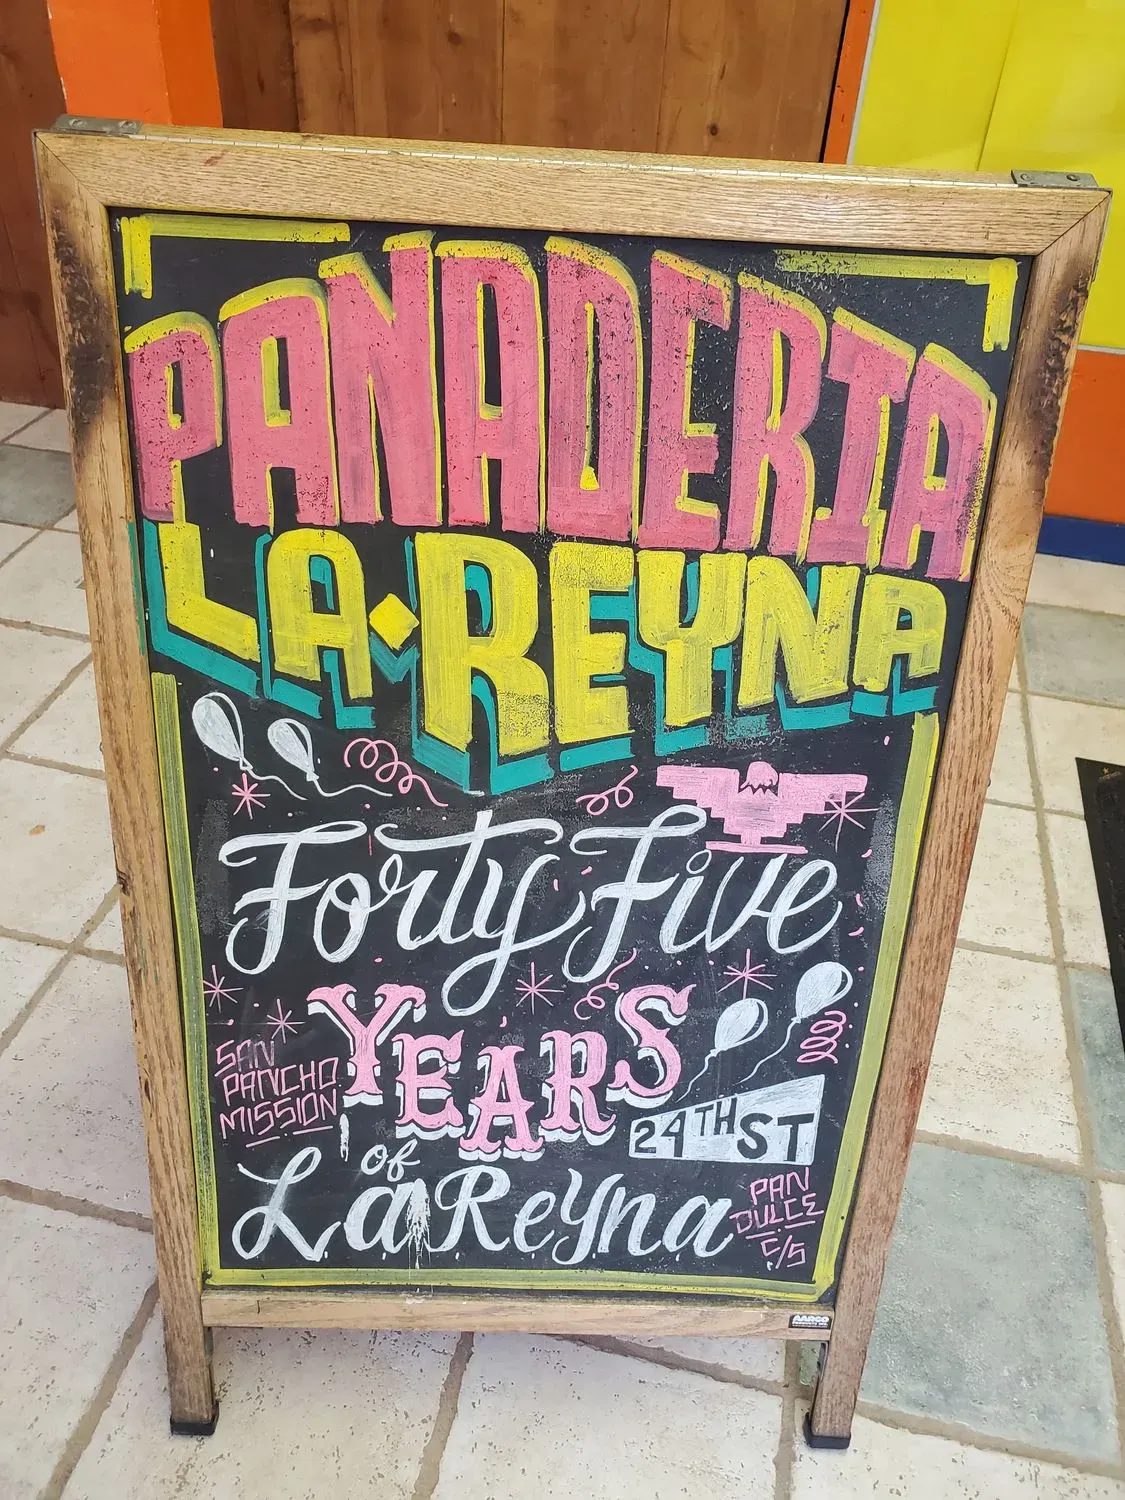 PANADERIA
LA REYNA
Forty Five
YEARS
SAN
PANCHO
MISSION
of
24TH ST
La Reyna
PAN
DULCE
C/S
AARCO